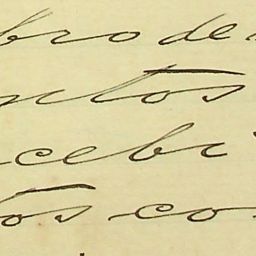 bro de
ntos
cebi
tos co